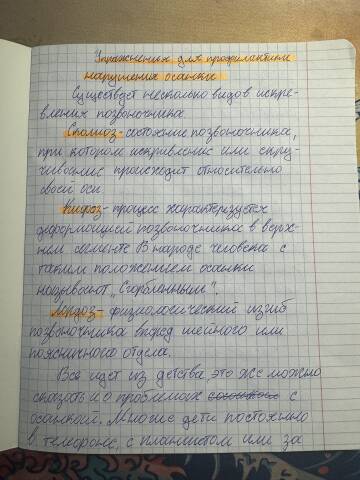 Упражнения для профилактики
нарушения осанки
Существует несколько видов искре-
вления позвоночника.
Сколиоз - состояние позвоночника,
при котором искривление или скру-
чивание происходит относительно
своей оси.
Кифоз - процесс характеризуется
деформацией позвоночника в верх-
нем сегменте. В народе человека с
таким положением осанки
называют "Сгорбленным".
Лордоз - физиологический изгиб
позвоночника вперед шейного или
поясничного отдела.
Всё идет из детства, это же можно
сказать и о проблемах с
осанкой. Многие дети постоянно
в телефоне, с планшетом или за